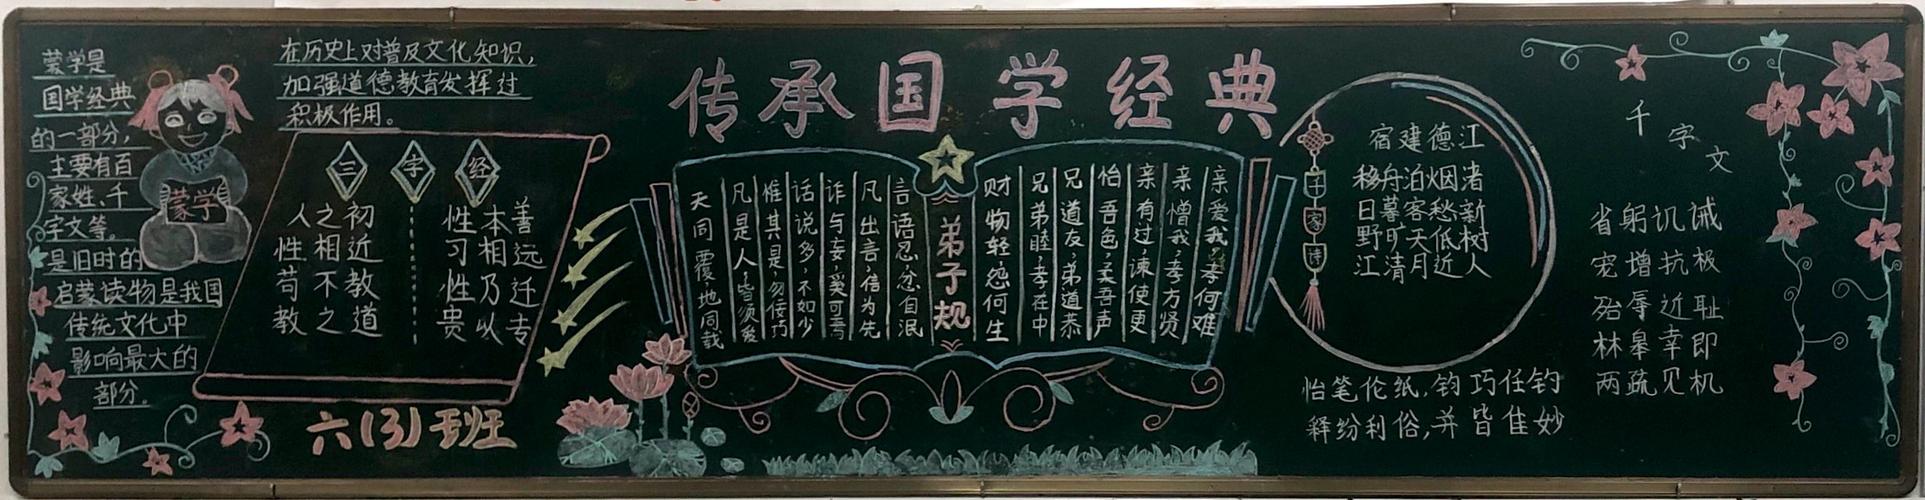 传承国学经典
蒙学是
国学经典
的一部分，
主要有百
家姓、千
字文等。
是旧时的
启蒙读物是我国
传统文化中
影响最大的
部分。
蒙学
在历史上对普及文化知识，
加强道德教育发挥过
积极作用。
三字经
人之初 性本善
性相近 习相远
苟不教 性乃迁
教之道 贵以专
六(3)班
弟子规
亲爱我，孝何难
亲憎我，孝方贤
亲有过，谏使更
怡吾色，柔吾声
兄道友，弟道恭
兄弟睦，孝在中
财物轻，怨何生
言语忍，忿自泯
凡出言，信为先
诈与妄，奚可焉
话说多，不如少
惟其是，勿佞巧
凡是人，皆须爱
天同覆，地同载
千家诗
宿建德江
移舟泊烟渚
日暮客愁新
野旷天低树
江清月近人
千字文
省躬讥诫
宠增抗极
殆辱近耻
林皋幸即
两疏见机
恬笔伦纸，钧巧任钓
释纷利俗，并皆佳妙